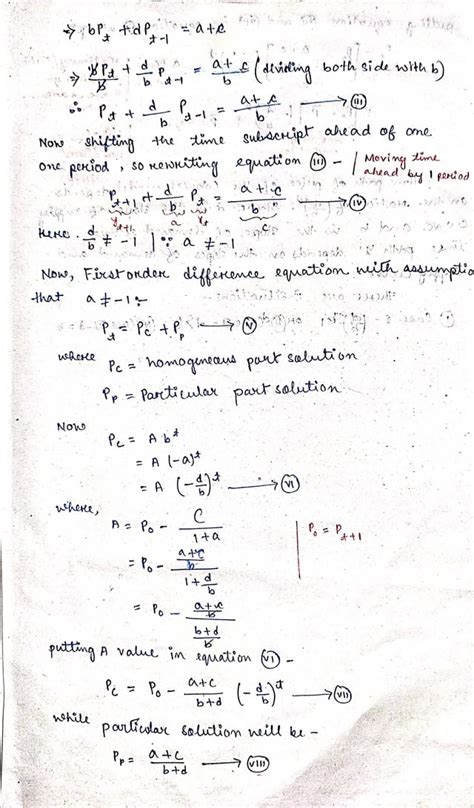 ⇒ bP_t + dP_{t-1} = a+c
⇒ bP_t/b + d/b P_{t-1} = a+c/b (dividing both side with b)
∴ P_t + d/b P_{t-1} = a+c/b → (iii)
Now shifting the time subscript ahead of one
one period, so rewriting equation (iii) - | Moving time ahead by 1 period
P_{t+1} + d/b P_t = a+c/b → (iv)
y_{t+1} a y_t c
Here. d/b ≠ -1 | ∵ a ≠ -1
Now, First order difference equation with assumptio
that a ≠ -1 :-
P_t = P_c + P_p → (v)
where P_c = homogeneous part solution
P_p = Particular part solution
Now P_c = A b^t
= A (-a)^t
= A (-d/b)^t → (vi)
where,
A = P_0 - C/1+a | P_0 = P_{t+1}
= P_0 - (a+c/b)/(1+d/b)
= P_0 - (a+c/b)/(b+d/b)
putting A value in equation (vi) -
P_c = P_0 - a+c/b+d (-d/b)^t → (vii)
while particular solution will be -
P_p = a+c/b+d → (viii)